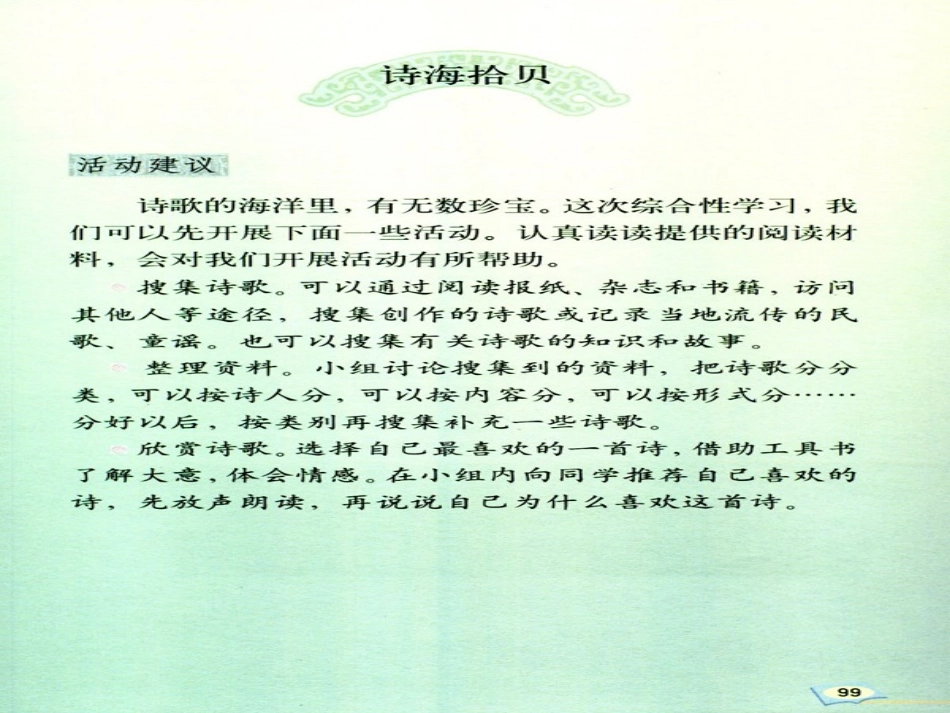 诗海拾贝
活动建议
诗歌的海洋里，有无数珍宝。这次综合性学习，我
们可以先开展下面一些活动。认真读读提供的阅读材
料，会对我们开展活动有所帮助。
搜集诗歌。可以通过阅读报纸、杂志和书籍，访问
其他人等途径，搜集创作的诗歌或记录当地流传的民
歌、童谣。也可以搜集有关诗歌的知识和故事。
整理资料。小组讨论搜集到的资料，把诗歌分分
类，可以按诗人分，可以按内容分，可以按形式分……
分好以后，按类别再搜集补充一些诗歌。
欣赏诗歌。选择自己最喜欢的一首诗，借助工具书
了解大意，体会情感。在小组内向同学推荐自己喜欢的
诗，先放声朗读，再说说自己为什么喜欢这首诗。
99